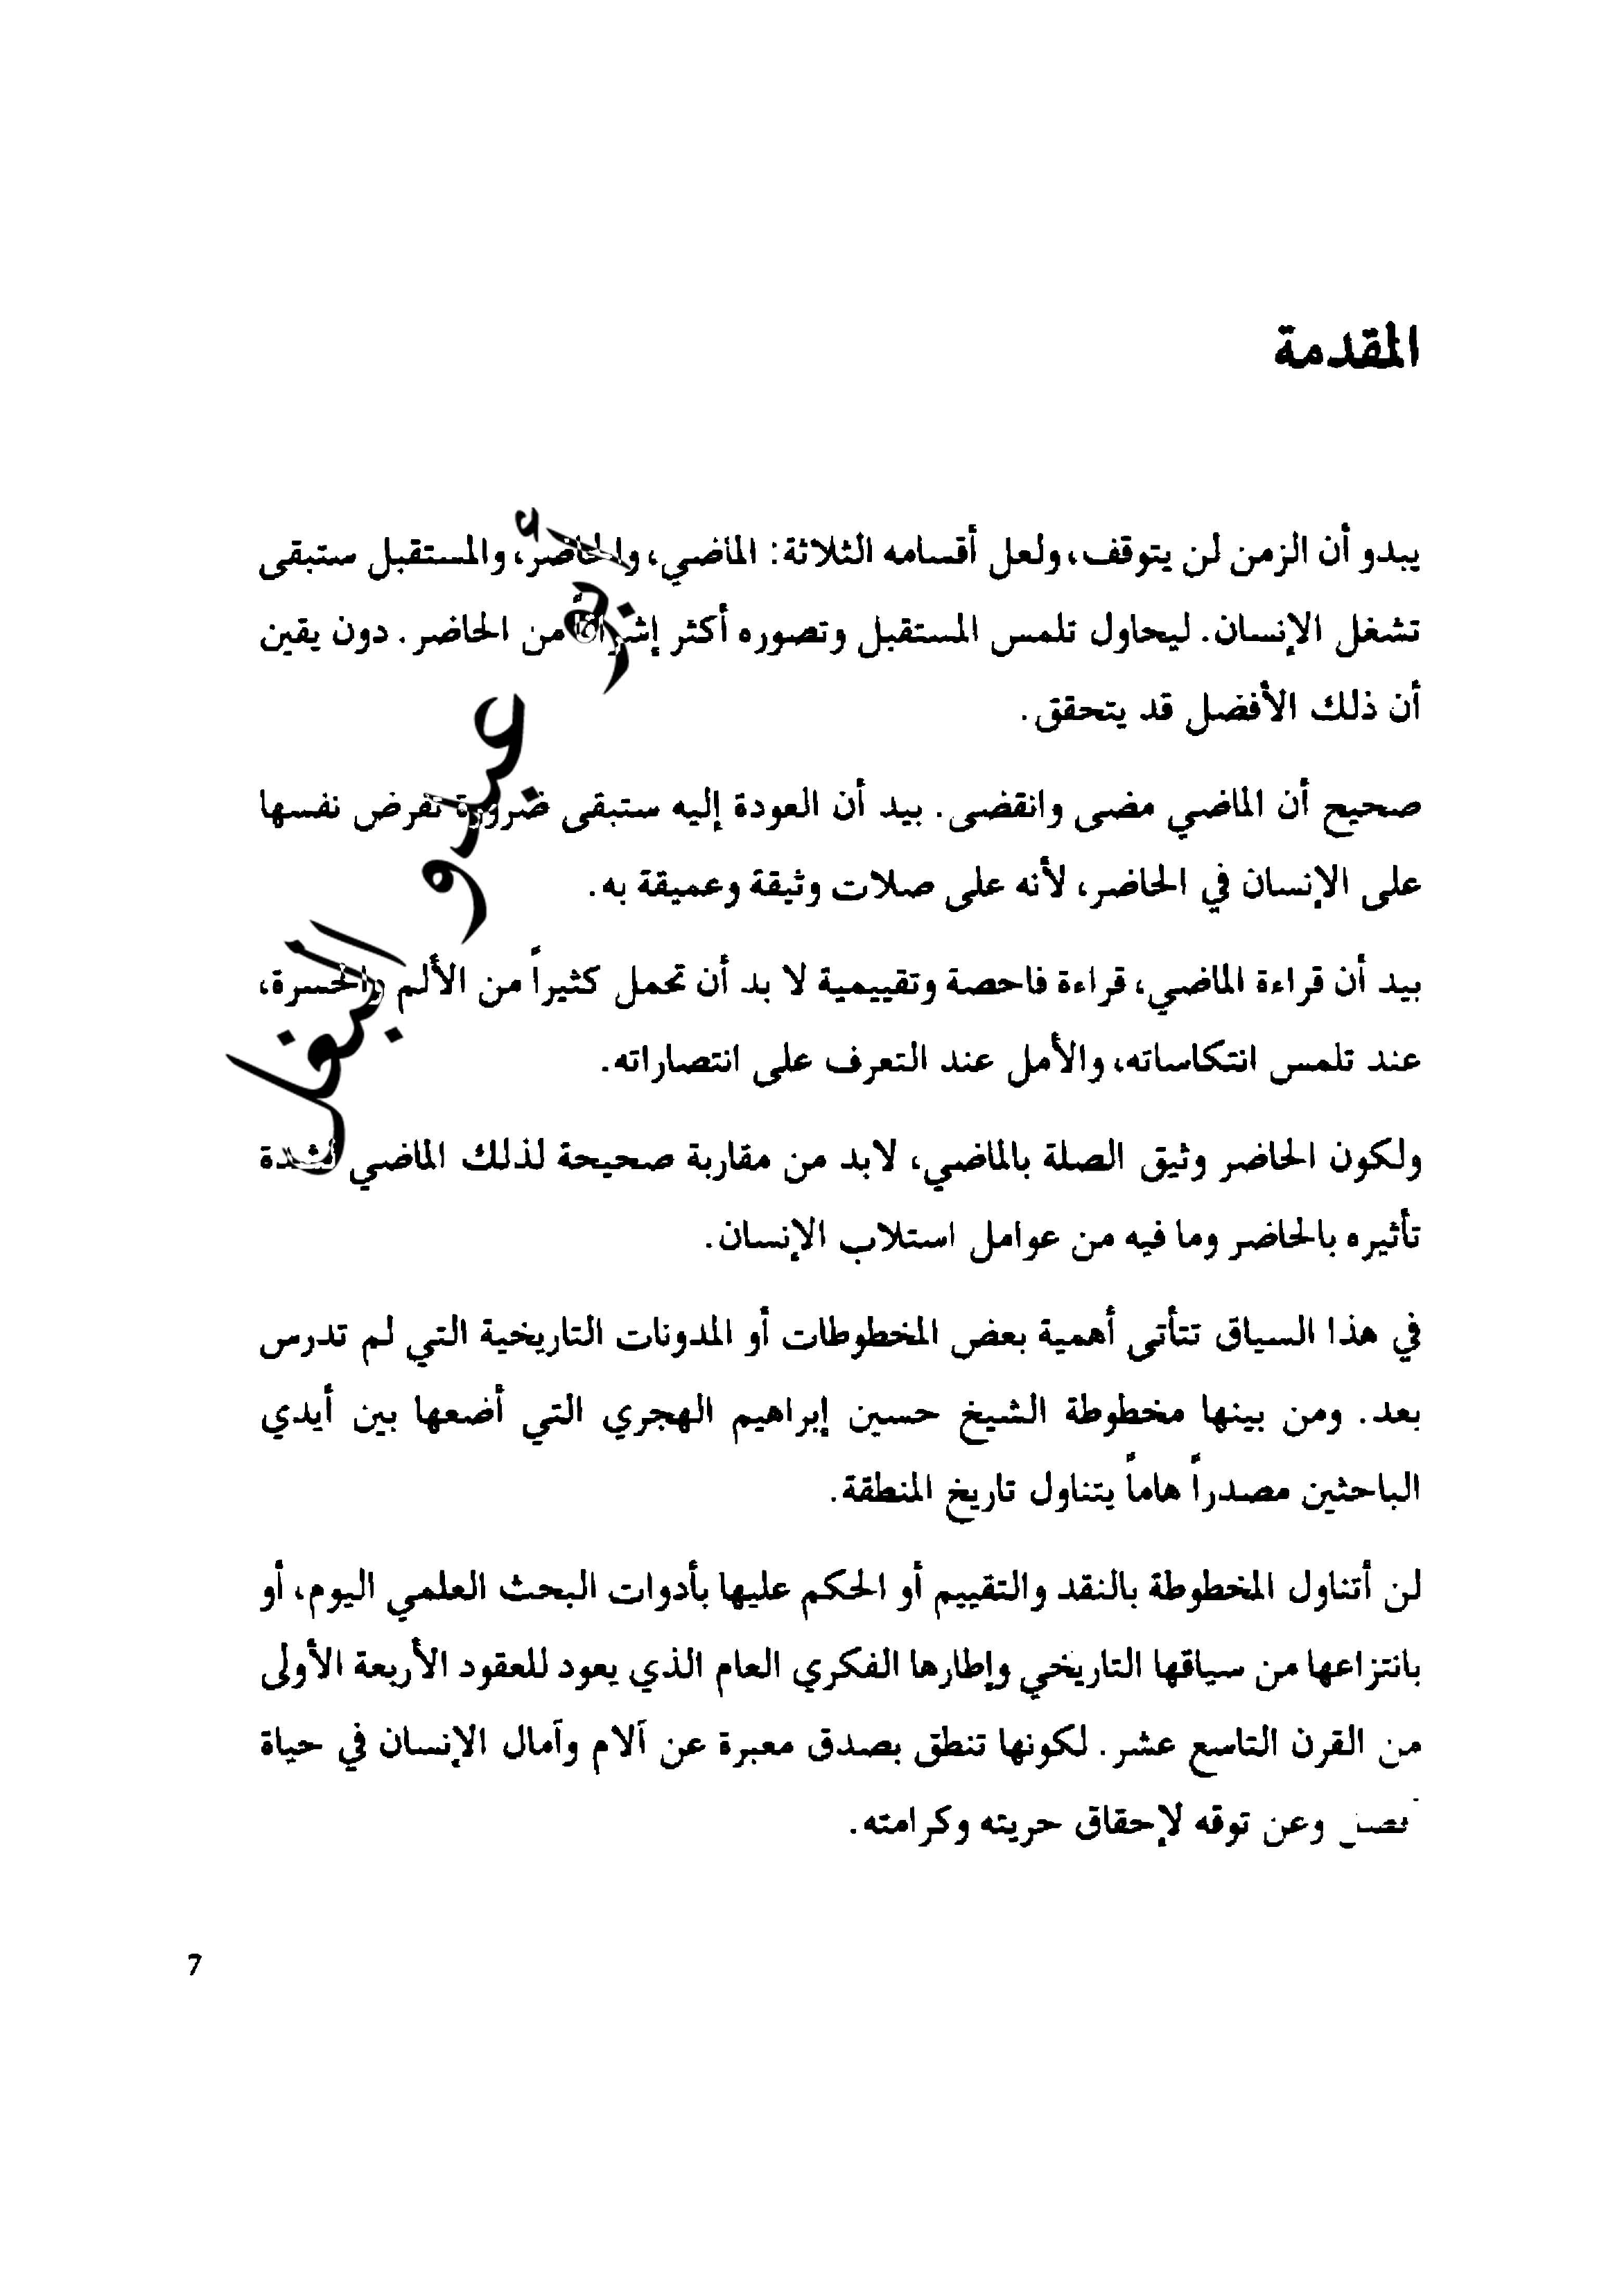 المقدمة
يبدو أن الزمن لن يتوقف، ولعل أقسامه الثلاثة: الماضي، والحاضر، والمستقبل ستبقى
تشغل الإنسان. ليحاول تلمس المستقبل وتصوره أكثر إشراقاً من الحاضر. دون يقين
أن ذلك الأفضل قد يتحقق.
صحيح أن الماضي مضى وانقضى. بيد أن العودة إليه ستبقى ضرورة تفرض نفسها
على الإنسان في الحاضر، لأنه على صلات وثيقة وعميقة به.
بيد أن قراءة الماضي، قراءة فاحصة وتقييمية لا بد أن تحمل كثيراً من الألم والحسرة،
عند تلمس انتكاساته، والأمل عند التعرف على انتصاراته.
ولكون الحاضر وثيق الصلة بالماضي، لابد من مقاربة صحيحة لذلك الماضي لشدة
تأثيره بالحاضر وما فيه من عوامل استلاب الإنسان.
في هذا السياق تتأتى أهمية بعض المخطوطات أو المدونات التاريخية التي لم تدرس
بعد. ومن بينها مخطوطة الشيخ حسين إبراهيم الهجري التي أضعها بين أيدي
الباحثين مصدراً هاماً يتناول تاريخ المنطقة.
لن أتناول المخطوطة بالنقد والتقييم أو الحكم عليها بأدوات البحث العلمي اليوم، أو
بانتزاعها من سياقها التاريخي وإطارها الفكري العام الذي يعود للعقود الأربعة الأولى
من القرن التاسع عشر. لكونها تنطق بصدق معبرة عن آلام وآمال الإنسان في حياة
وعن توقه لإحقاق حريته وكرامته.
عبدو البغل
7